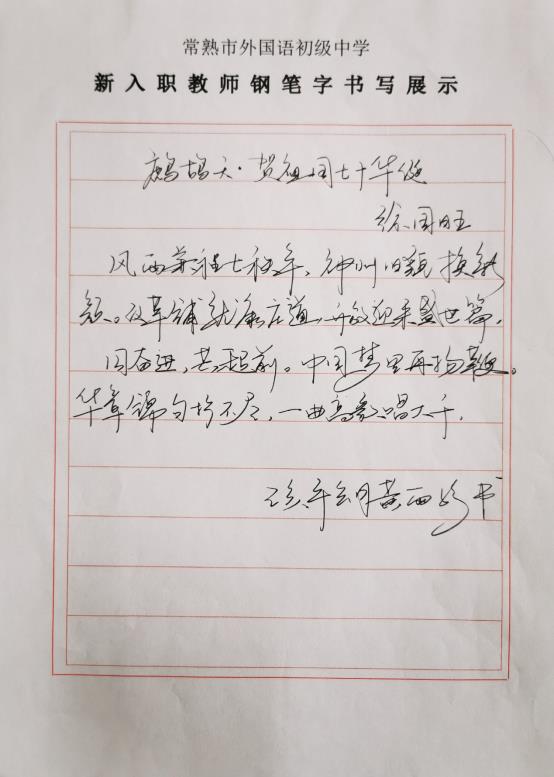 常熟市外国语初级中学
新入职教师钢笔字书写展示
鹧鸪天·贺祖国七十华诞
徐国旺
风雨兼程七秩年，神州旧貌换新
颜。改革铺就康庄道，开放迎来盛世篇。
同奋进，共超前。中国梦里再扬鞭。
华章锦句抒不尽，一曲高歌唱大千。
年 月黄西 书